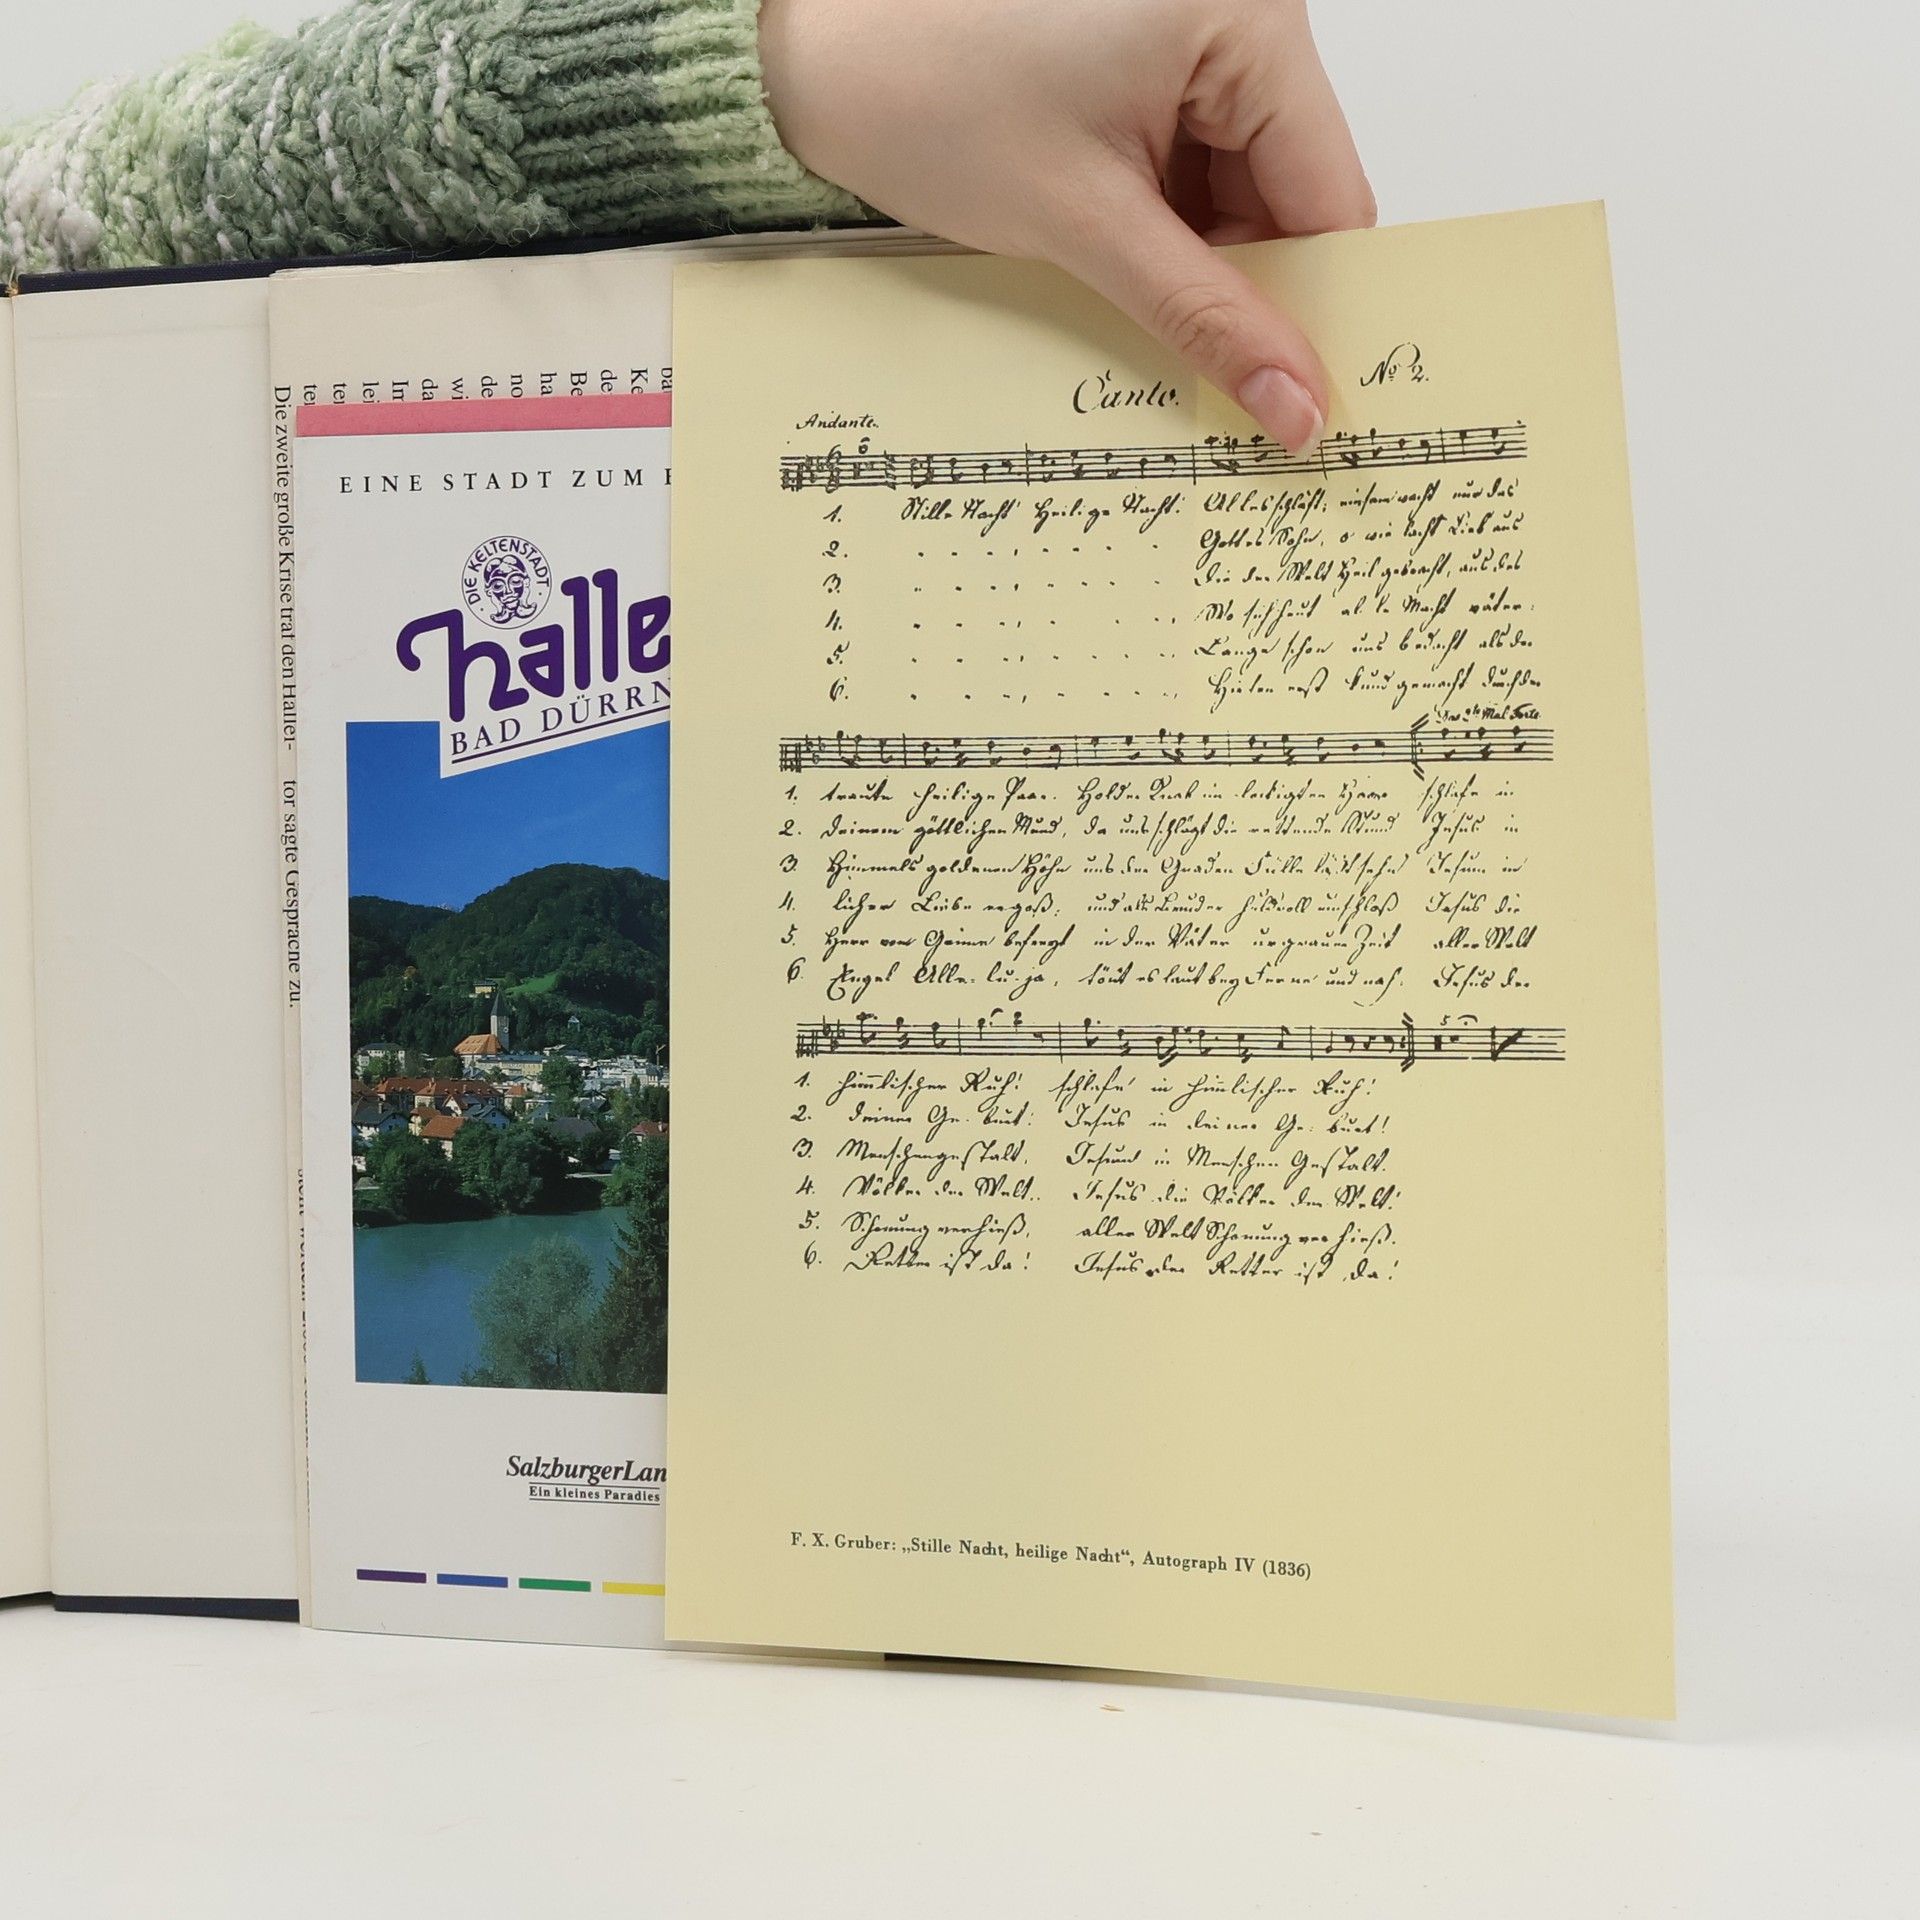 Die zweite große Krise trat den Hallei-
tor sagte Gespräche zu.
EINE STADT ZUM
DIE KELTENSTADT
halle
BAD DÜRRN
SalzburgerLan
Ein kleines Paradies
Canto.
No 2.
Andante.
1. Stille Nacht! Heilige Nacht! Alles schläft; einsam wacht nur das
2. Gottes Sohn, o wie lacht Lieb aus
3. Die der Welt Heil gebracht, aus des
4. Wo sich heut alle Macht väter:
5. Lange schon uns bedacht als der
6. Hirten erst kund gemacht durch der
Das 2te Mal Forte.
1. traute heilige Paar. Holder Knab im lockigten Haar schlafe in
2. Deinem göttlichen Mund, da uns schlägt die rettende Stund Jesus in
3. Himmels goldenen Höhn uns der Gnaden Fülle läßt sehn Jesum in
4. licher Liebe ergoß; und als Bruder huldvoll umschloß Jesus die
5. Herr vom Grime befreyt in der Väter urgrauer Zeit aller Welt
6. Engel Alle-lu-ja, tönt es laut bey Ferne und nah: Jesus der
1. himmlischer Ruh! schlafe in himmlischer Ruh!
2. deiner Ge-burt: Jesus in deiner Ge-burt!
3. Menschengestalt, Jesum in Menschen Gestalt.
4. Völker der Welt.. Jesus die Völker der Welt!
5. Schonung verhieß, aller Welt Schonung verhieß.
6. Retter ist da! Jesus der Retter ist da!
F. X. Gruber: „Stille Nacht, heilige Nacht“, Autograph IV (1836)